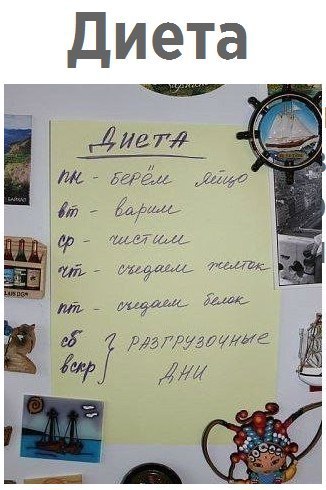 Диета
ДИЕТА
пн - берём яйцо
вт - варим
ср - чистим
чт - съедаем желток
пт - съедаем белок
сб } РАЗГРУЗОЧНЫЕ
вскр } ДНИ
БАЙКАЛ